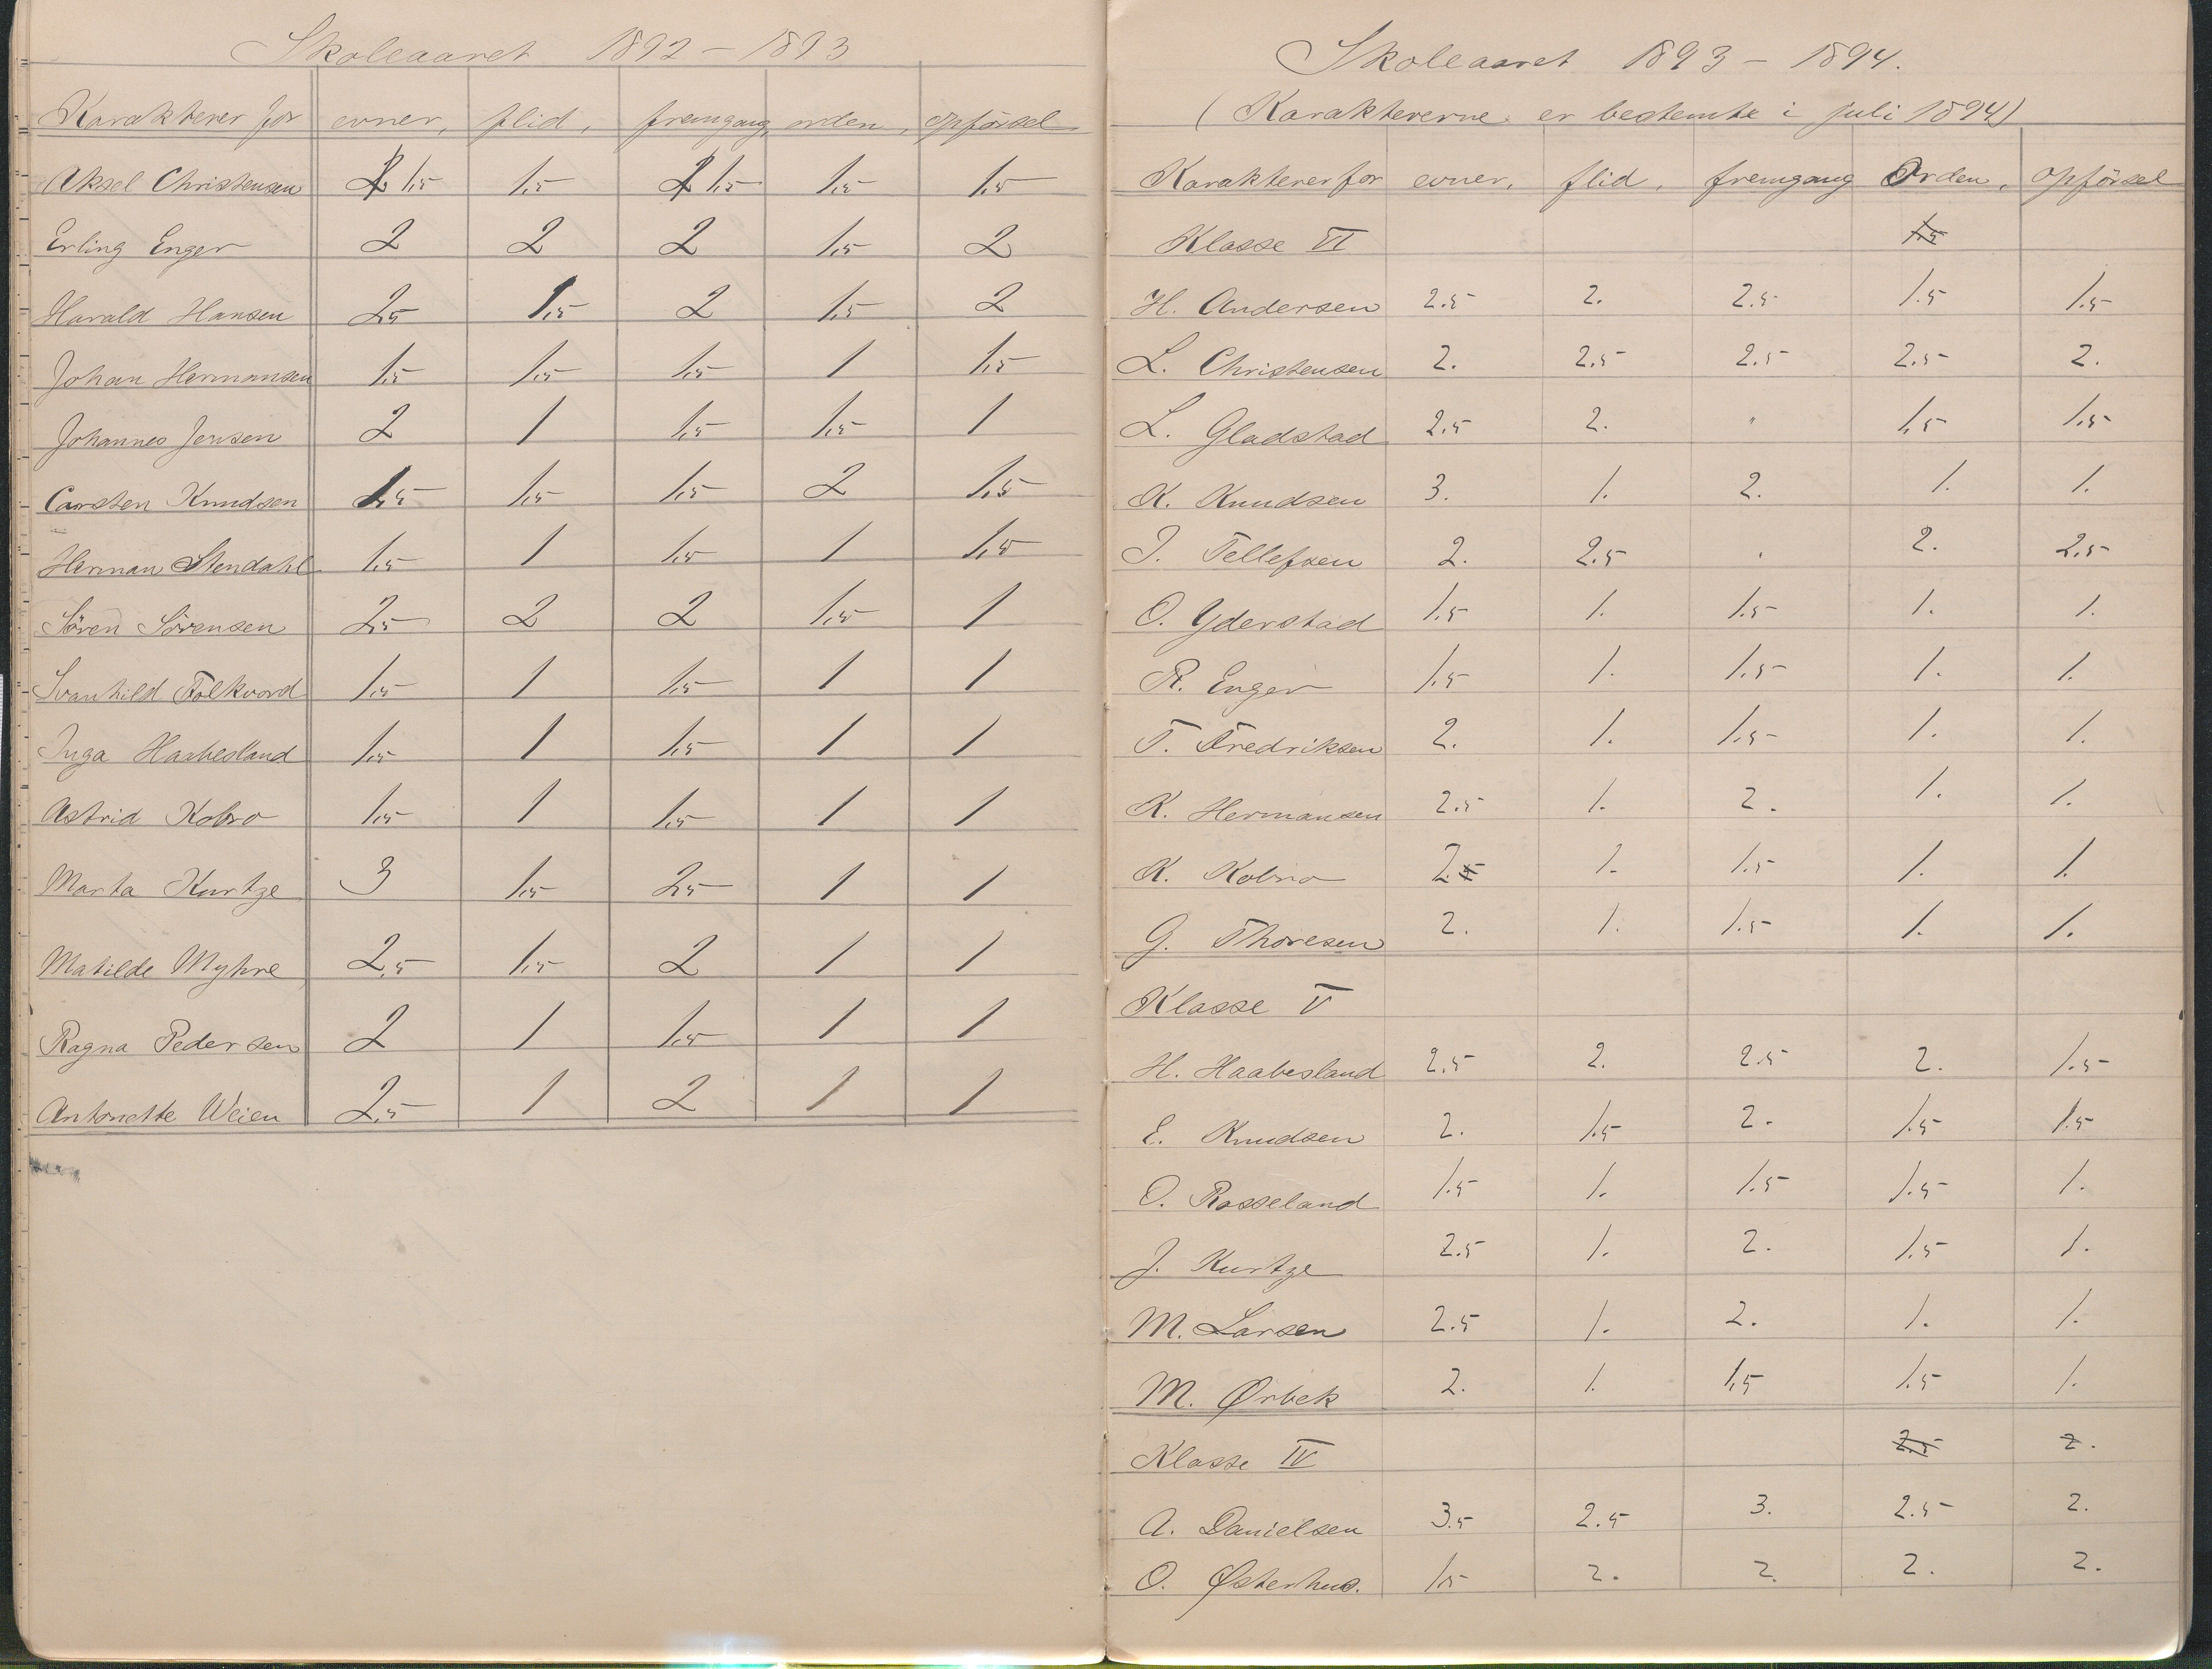 Skoleaaret 1892 – 1893
Karakterer for evner, flid, fremgang, orden, opförsel
Aksel Christensen 2 1,5 1,5 2 1,5 1,5 1,5
Erling Enger 2 2 2 1,5 2
Harald Hansen 2,5 1,5 2 1,5 2
Johan Hermansen 1,5 1,5 1,5 1 1,5
Johannes Jensen 2 1 1,5 1,5 1
Carsten Knudsen 1,5 1,5 1,5 2 1,5
Herman Stendahl 1,5 1 1,5 1 1,5
Sören Sörensen 2,5 2 2 1,5 1
Svanhild Folkvord 1,5 1 1,5 1 1
Inga Haabesland 1,5 1 1,5 1 1
Astrid Kobro 1,5 1 1,5 1 1
Marta Kurtze 3 1,5 2,5 1 1
Matilde Myhre 2,5 1,5 2 1 1
Ragna Pedersen 2 1 1,5 1 1
Antonette Weien 2,5 1 2 1 1
Skoleaaret 1893 – 1894.
(Karaktererne er bestemte i juli 1894)
Karakterer for evner, flid, fremgang Orden, opförsel
Klasse VI 1.5
H. Andersen 2.5 2. 2.5 1.5 1.5
L. Christensen 2. 2.5 2.5 2.5 2.
L. Gladstad 2.5 2. " 1,5 1.5
K. Knudsen 3. 1. 2. 1. 1.
J. Tellefsen 2. 2.5 . 2. 2.5
O. Yderstad 1.5 1. 1.5 1. 1.
R. Enger 1.5 1. 1.5 1. 1.
T. Fredriksen 2. 1. 1.5 1. 1.
K. Hermansen 2.5 1. 2. 1. 1.
K. Kobro 2.5 1. 1.5 1. 1.
G. Thoresen 2. 1. 1.5 1. 1.
Klasse V
H. Haabesland 2.5 2. 2.5 2. 1.5
E. Knudsen 2. 1.5 2. 1.5 1.5
O. Rosseland 1.5 1. 1.5 1.5 1.
J. Kurtze 2.5 1. 2. 1.5 1.
M. Larsen 2.5 1. 2. 1. 1.
M. Ørbek 2. 1. 1,5 1.5 1.
Klasse IV 2.5 2.
A. Danielsen 3.5 2.5 3. 2.5 2.
O. Østerhus. 1.5 2. 2. 2. 2.